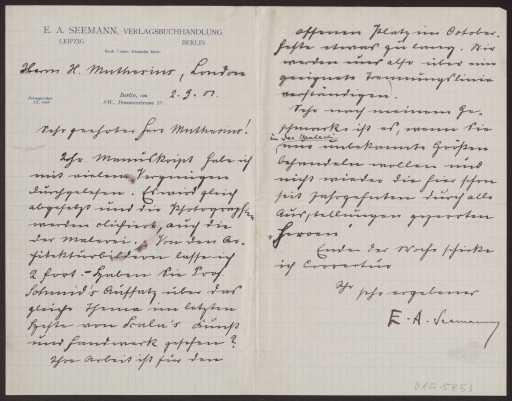 E. A. SEEMANN, VERLAGSBUCHHANDLUNG
LEIPZIG BERLIN
Herrn H. Muthesius, London
Berlin, den 2. 9. 01.
Sehr geehrter Herr Muthesius!
Ihr Manuskript habe ich
mit vielem Vergnügen
durchgelesen. Es wird gleich
abgesetzt und die Photographien
werden clichiert, auch die
der Malerei. Von den Ar-
chitekturbildern lasse ich
2 fort. - Haben Sie Prof
Schmid's Aufsatz über das
gleiche Thema im letzten
Hefte von Scala's Kunst
und Handwerk gesehen?
Ihre Arbeit ist für den
offenen Platz im October-
hefte etwas zu lang. Wir
werden uns also über eine
geeignete Trennungslinie
verständigen.
Sehr nach meinem Ge-
schmacke ist es, wenn Sie
in der Malerei
uns unbekannte Größen
behandeln wollen und
nicht wieder die hier schon
seit Jahrzehnten durch alle
Ausstellungen gezerrten
"Heroen"
Ende der Woche schicke
ich Correctur
Ihr sehr ergebener
E. A. Seemann